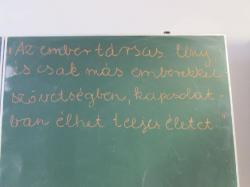 "Az ember társas lény,
és csak más emberekkel
szövetségben, kapcsolat-
ban élhet teljes életet"